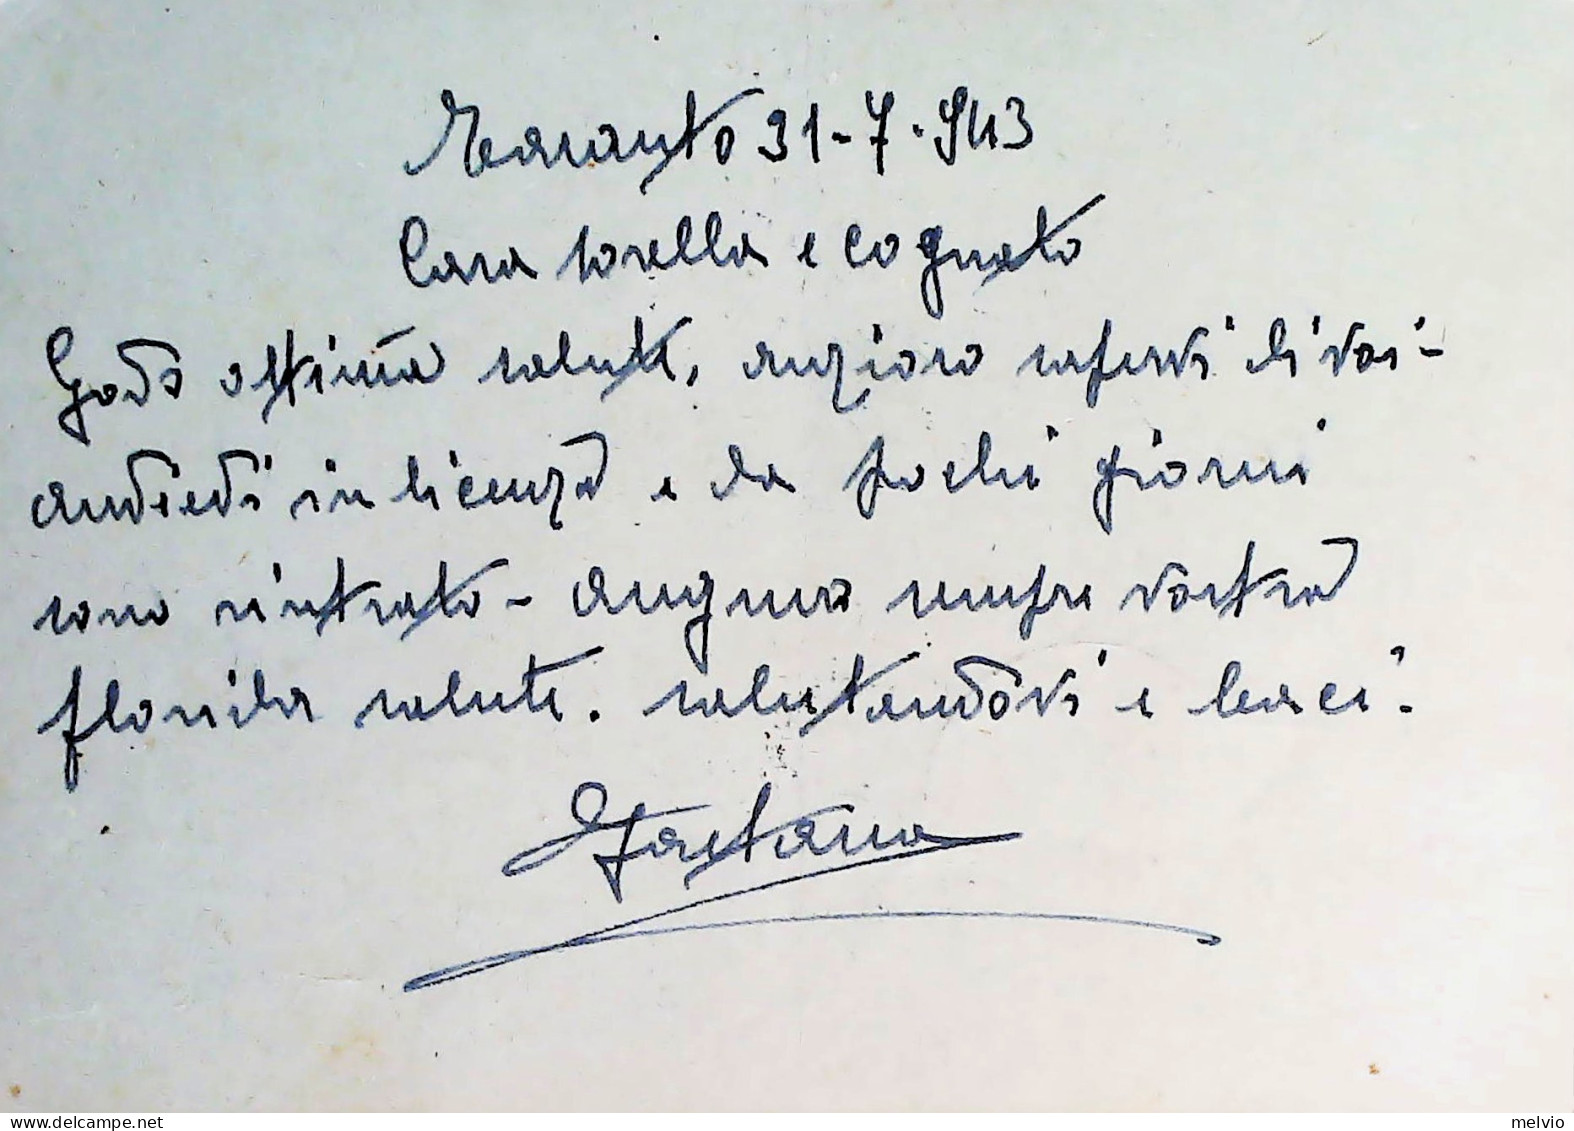 Taranto 31-7-943
Cara sorella e cognato
Godo ottima salute, anzioso sapervi di voi-
andiedi in licenza e da pochi giorni
sono rintrato - auguro sempre vostra
florida salute. salutandovi e baci.
Gaetano
melvio